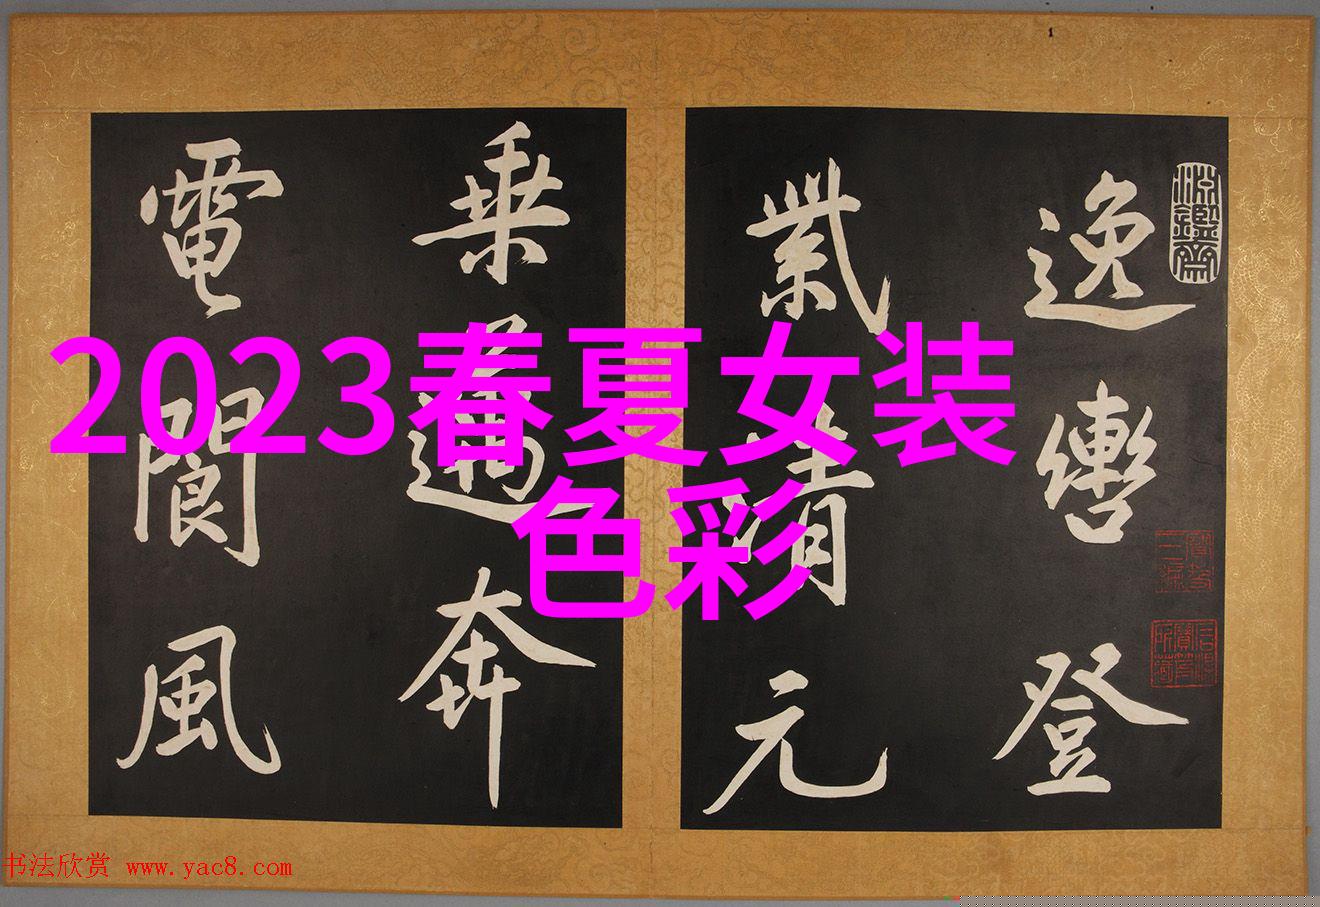 2023春夏女装
色彩
逸轡登
紫清元
乘邁奔
電閬風
书法欣赏 www.yac8.com